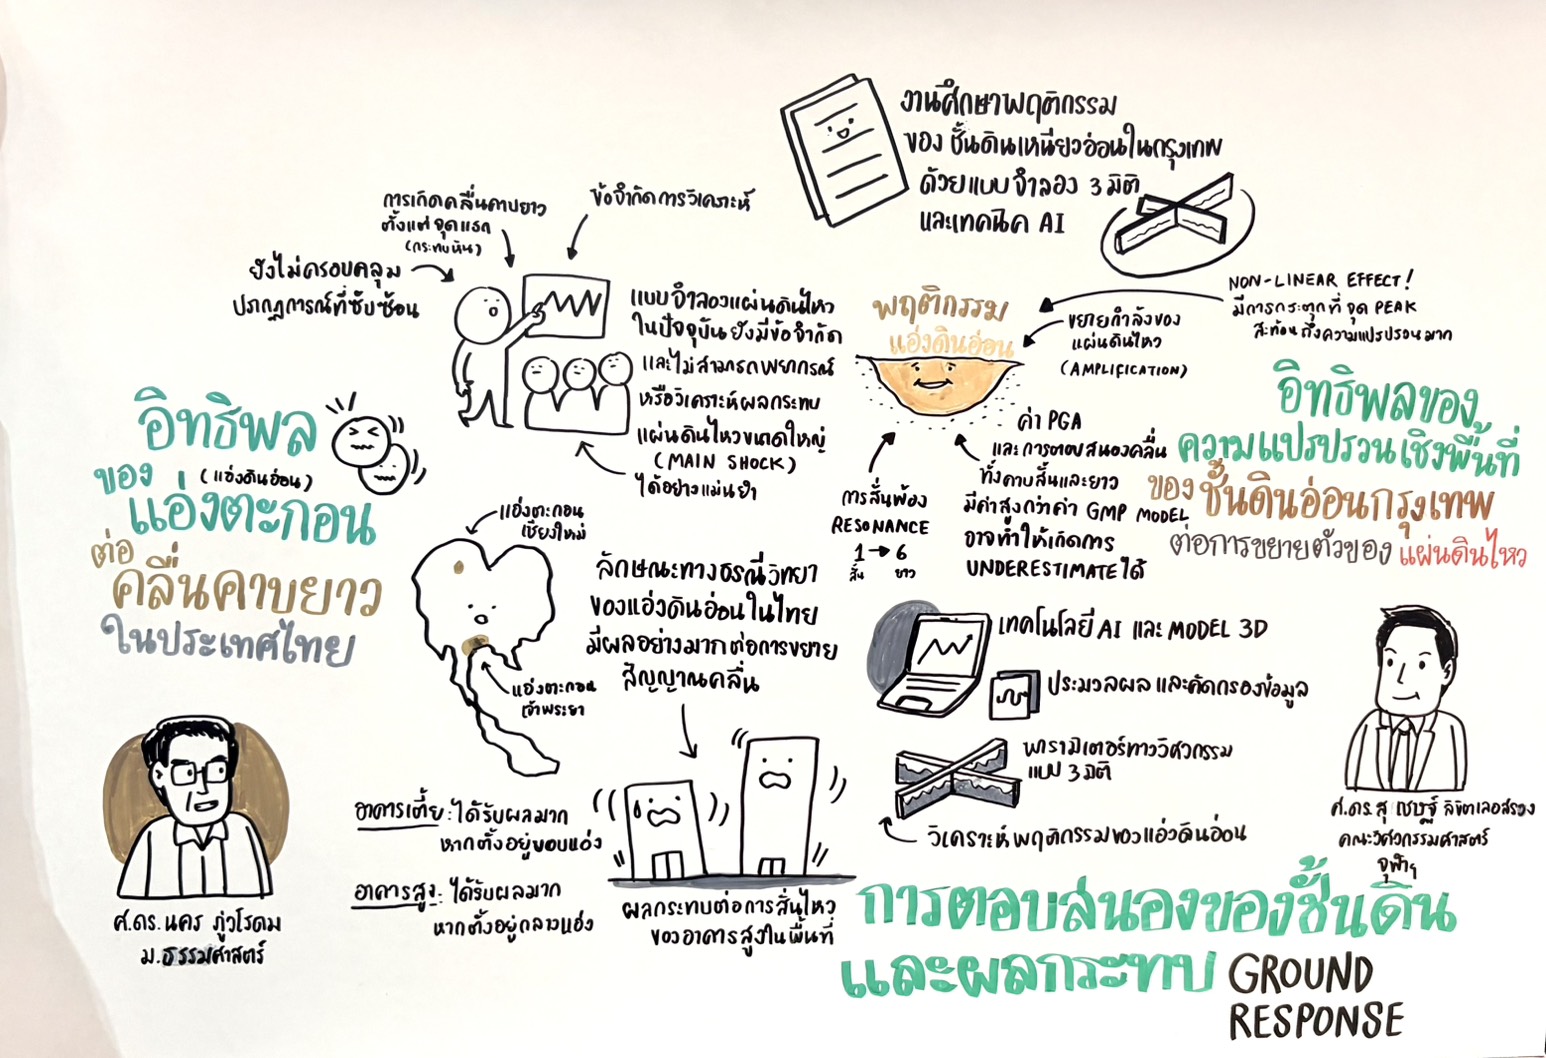 อิทธิพล
ของ (แอ่งดินอ่อน)
แอ่งตะกอน
ต่อ
คลื่นคาบยาว
ในประเทศไทย
ศ.ดร.นคร ภู่วโรดม
ม.ธรรมศาสตร์
การเกิดคลื่นคาบยาว
ตั้งแต่จุดแรก
(กระทบหิน)
ข้อจำกัดการวิเคราะห์
ยังไม่ครอบคลุม
ปรากฏการณ์ที่ซับซ้อน
แบบจำลองแผ่นดินไหว
ในปัจจุบันยังมีข้อจำกัด
และไม่สามารถพยากรณ์
หรือวิเคราะห์ผลกระทบ
แผ่นดินไหวขนาดใหญ่
(MAIN SHOCK)
ได้อย่างแม่นยำ
แอ่งตะกอน
เชียงใหม่
แอ่งตะกอน
เจ้าพระยา
ลักษณะทางธรณีวิทยา
ของแอ่งดินอ่อนในไทย
มีผลอย่างมากต่อการขยาย
สัญญาณคลื่น
อาคารเตี้ย : ได้รับผลมาก
หากตั้งอยู่ขอบแอ่ง
อาคารสูง : ได้รับผลมาก
หากตั้งอยู่กลางแอ่ง
ผลกระทบต่อการสั่นไหว
ของอาคารสูงในพื้นที่
งานศึกษาพฤติกรรม
ของ ชั้นดินเหนียวอ่อนในกรุงเทพ
ด้วยแบบจำลอง 3 มิติ
และเทคนิค AI
พฤติกรรม
แอ่งดินอ่อน
NON-LINEAR EFFECT!
มีการกระตุกที่จุด PEAK
สะท้อนถึงความแปรปรวนมาก
ขยายกำลังของ
แผ่นดินไหว
(AMPLIFICATION)
การสั่นพ้อง
RESONANCE
1 → 6
สั้น ยาว
ค่า PGA
และการตอบสนองคลื่น
ทั้งคาบสั้นและยาว
มีค่าสูงกว่าค่า GMP MODEL
อาจทำให้เกิดการ
UNDERESTIMATE ได้
อิทธิพลของ
ความแปรปรวนเชิงพื้นที่
ของ ชั้นดินอ่อนกรุงเทพ
ต่อการขยายตัวของ แผ่นดินไหว
เทคโนโลยี AI และ MODEL 3D
ประมวลผล และคัดกรองข้อมูล
พารามิเตอร์ทางวิศวกรรม
แบบ 3 มิติ
วิเคราะห์พฤติกรรมของแอ่งดินอ่อน
ศ.ดร.สุเชษฐ์ ลิขิตเลอสรวง
คณะวิศวกรรมศาสตร์
จุฬาฯ
การตอบสนองของชั้นดิน
และผลกระทบ GROUND
RESPONSE